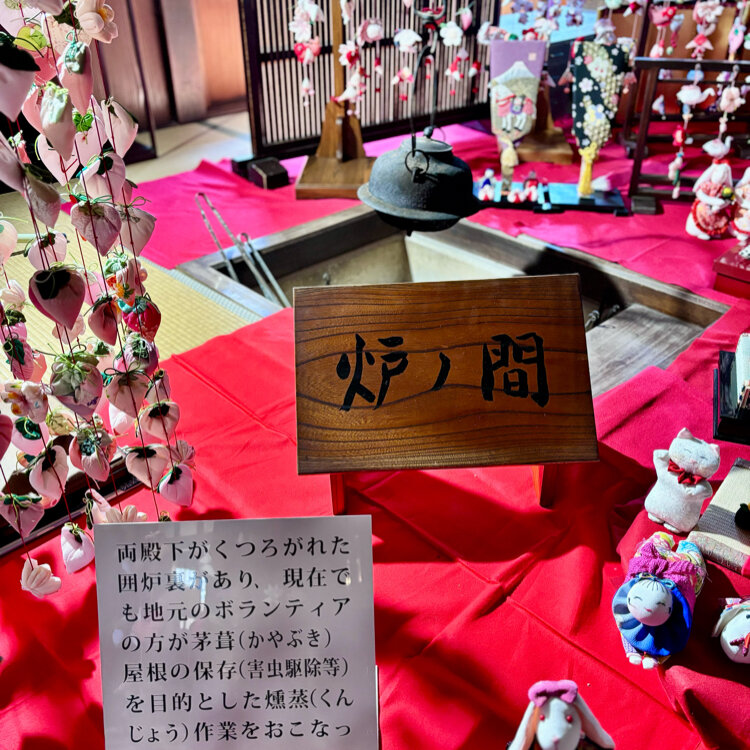 炉ノ間
両殿下がくつろがれた
囲炉裏があり、現在で
も地元のボランティア
の方が茅葺(かやぶき)
屋根の保存(害虫駆除等)
を目的とした燻蒸(くん
じょう)作業をおこなっ